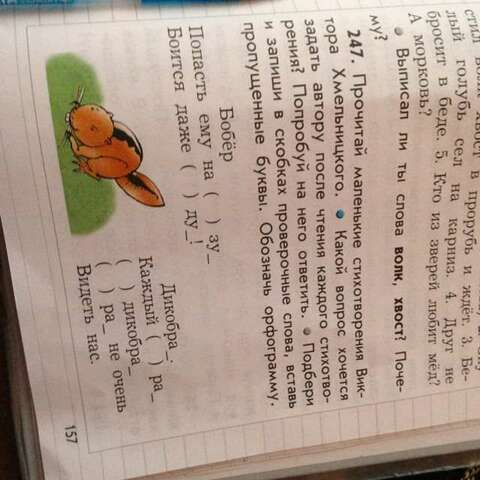 стил волк хвост в прорубь и ждёт. 3. Бе-
лый голубь сел на карниз. 4. Друг не
бросит в беде. 5. Кто из зверей любит мёд?
А морковь?
• Выписал ли ты слова волк, хвост? Поче-
му?
247. Прочитай маленькие стихотворения Вик-
тора Хмельницкого. • Какой вопрос хочется
задать автору после чтения каждого стихотво-
рения? Попробуй на него ответить. • Подбери
и запиши в скобках проверочные слова, вставь
пропущенные буквы. Обозначь орфограмму.
Бобёр
Попасть ему на ( ) зу_
Боится даже ( ) ду_!
Дикобра_
Каждый ( ) ра_
( ) дикобра_
( ) ра_ не очень
Видеть нас.
157